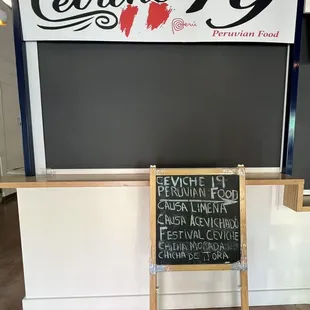 Ceviche 19
Perú
Peruvian Food
CEVICHE 19
PERUVIAN FOOD
CAUSA LIMEÑA
CAUSA ACEVICHADO
FESTIVAL CEVICHE
CHICHA MORADA
CHICHA DE JORA